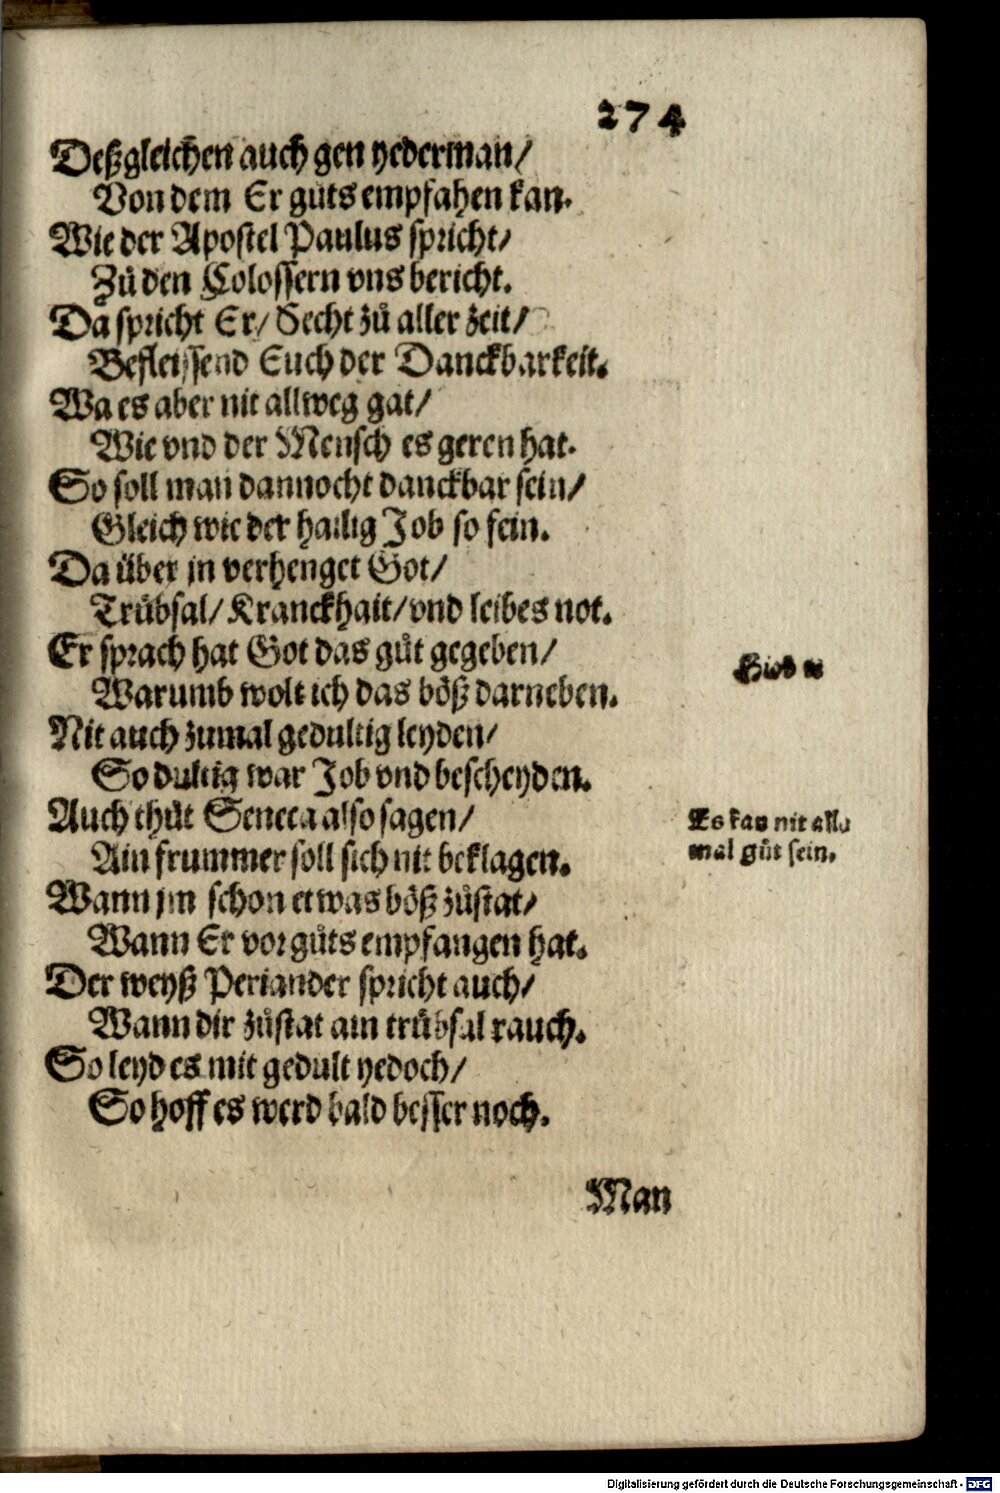 274
Deßgleichen auch gen yederman/
Von dem Er guͦts empfahen kan.
Wie der Apostel Paulus spricht/
Zuͦ den Colossern vns bericht.
Da spricht Er/ Secht zuͦ aller zeit/
Befleyssend Euch der Danckbarkeit.
Wa es aber nit allweg gat/
Wie vnd der Mensch es geren hat.
So soll man dannocht danckbar sein/
Gleich wie der hailig Job so fein.
Da über jn verhenget Got/
Truͤbsal/ Kranckhait/ vnd leibes not.
Er sprach hat Got das guͦt gegeben/
Warumb wolt ich das böß darneben.
Nit auch zumal gedultig leyden/
So dultig war Job vnd bescheyden.
Auch thuͦt Seneca also sagen/
Ain frummer soll sich nit beklagen.
Wann jm schon etwas böß zuͦstat/
Wann Er vor guͦts empfangen hat.
Der weyß Periander spricht auch/
Wann dir zuͦstat ain truͤbsal rauch.
So leyd es mit gedult yedoch/
So hoff es werd bald besser noch.
Hiob
Es kan nit alle
mal guͦt sein.
Man
Digitalisierung gefördert durch die Deutsche Forschungsgemeinschaft - DFG